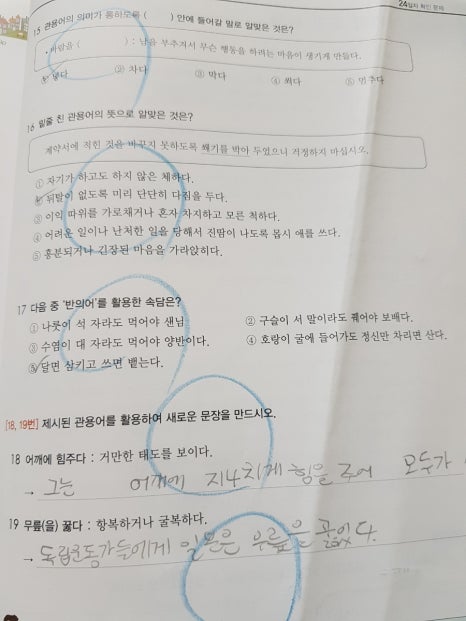 24일차 확인 문제
15 관용어의 의미가 통하도록 ( ) 안에 들어갈 말로 알맞은 것은?
• 바람을 ( ) : 남을 부추겨서 무슨 행동을 하려는 마음이 생기게 만들다.
① 넣다 ② 차다 ③ 막다 ④ 쐬다 ⑤ 맞추다
16 밑줄 친 관용어의 뜻으로 알맞은 것은?
계약서에 적힌 것을 바꾸지 못하도록 쐐기를 박아 두었으니 걱정하지 마십시오.
① 자기가 하고도 하지 않은 체하다.
② 뒤탈이 없도록 미리 단단히 다짐을 두다.
③ 이익 따위를 가로채거나 혼자 차지하고 모른 척하다.
④ 어려운 일이나 난처한 일을 당해서 진땀이 나도록 몹시 애를 쓰다.
⑤ 흥분되거나 긴장된 마음을 가라앉히다.
17 다음 중 '반의어'를 활용한 속담은?
① 나룻이 석 자라도 먹어야 샌님 ② 구슬이 서 말이라도 꿰어야 보배다.
③ 수염이 대 자라도 먹어야 양반이다. ④ 호랑이 굴에 들어가도 정신만 차리면 산다.
⑤ 달면 삼키고 쓰면 뱉는다.
[18, 19번] 제시된 관용어를 활용하여 새로운 문장을 만드시오.
18 어깨에 힘주다 : 거만한 태도를 보이다.
→ 그는 어깨에 지나치게 힘을 주어 모두가
19 무릎(을) 꿇다 : 항복하거나 굴복하다.
→ 독립운동가들에게 일본은 무릎을 꿇었다.